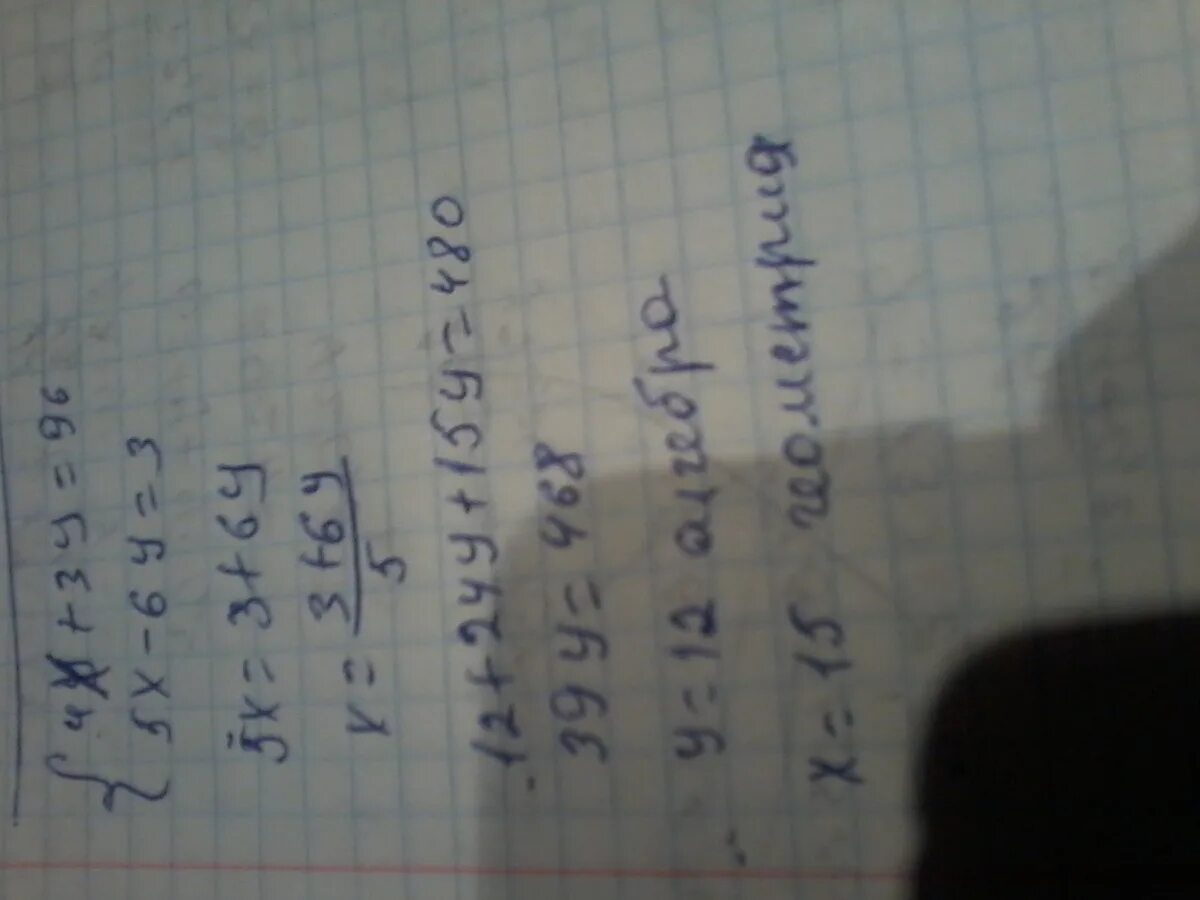 { 4x + 3y = 96
5x - 6y = 3
5x = 3 + 6y
x = 3+6y / 5
12 + 24y + 15y = 480
39y = 468
y = 12 алгебра
x = 15 геометрия